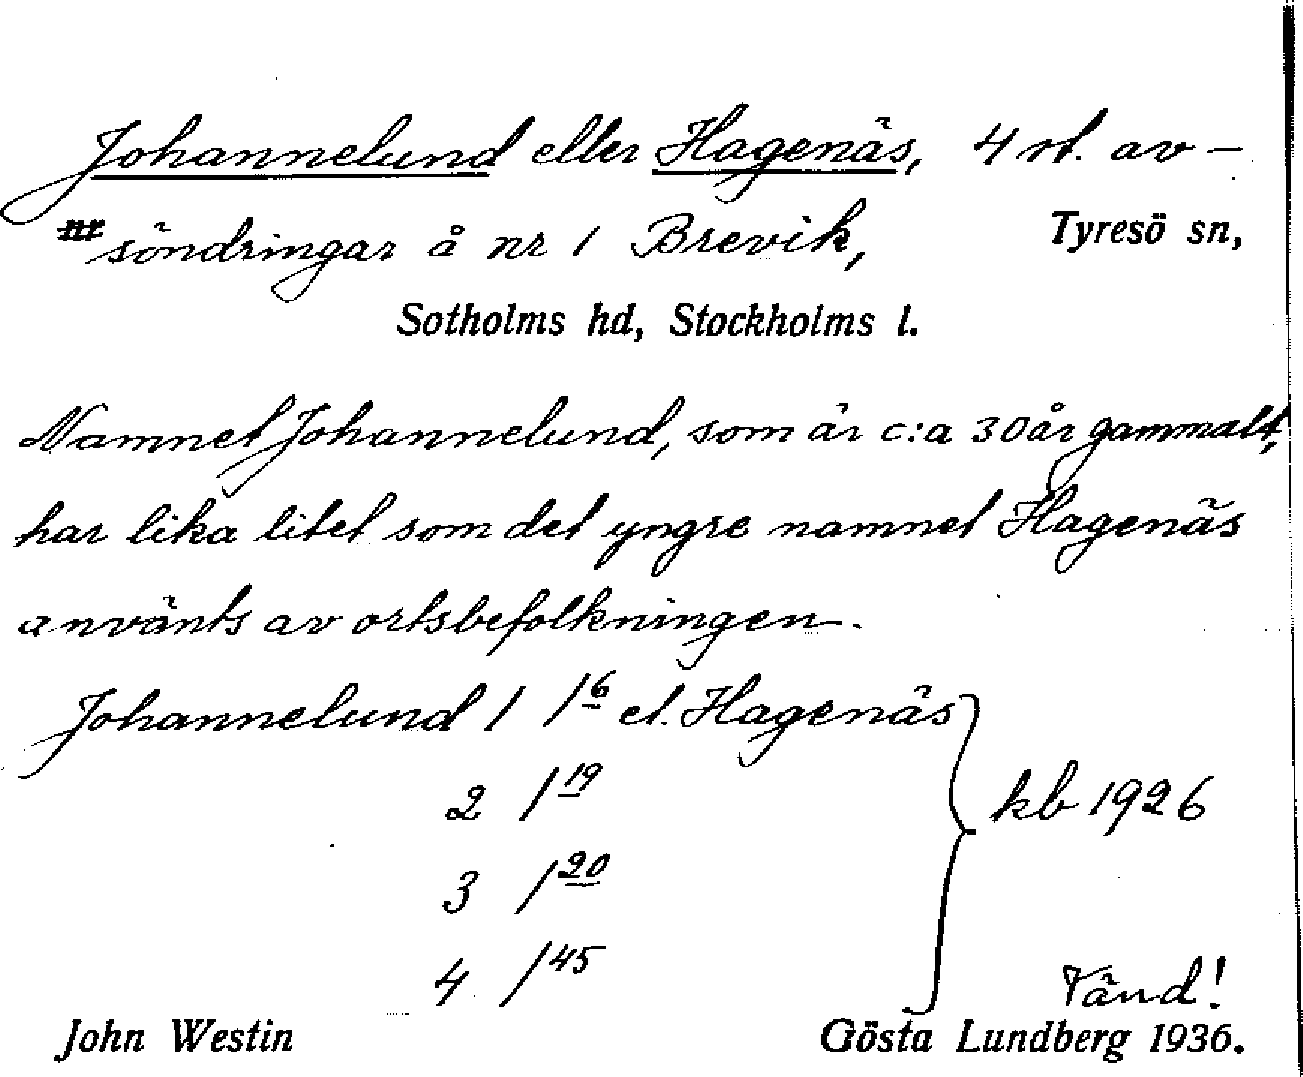 Johannelund eller Hagenäs, 4 st. av-
söndringar å nr 1 Brevik, Tyresö sn,
Sotholms hd, Stockholms l.
Namnet Johannelund, som är c:a 30 år gammalt,
har lika litet som det yngre namnet Hagenäs
använts av ortsbefolkningen.
Johannelund 1 1⁶ el. Hagenäs
2 1¹⁹
3 1²⁰ kb 1926
4 1⁴⁵
Vänd!
John Westin Gösta Lundberg 1936.